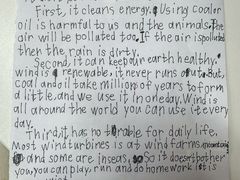 First, it cleans energy. Using coal or
oil is harmful to us and the animals. The
air will be polluted too. If the air is polluted
then the rain is dirty.
Second, it can keep our earth healthy.
wind is renewable, it never runs out. But,
coal and oil take millions of years to form
a little, and we use it in one day. Wind is
all around the world you can use it every
day.
Third, it has no trouble for daily life.
Most wind turbines is at wind farms,
and some are in seas. So it doesn't bother
you, you can play, run and do homework